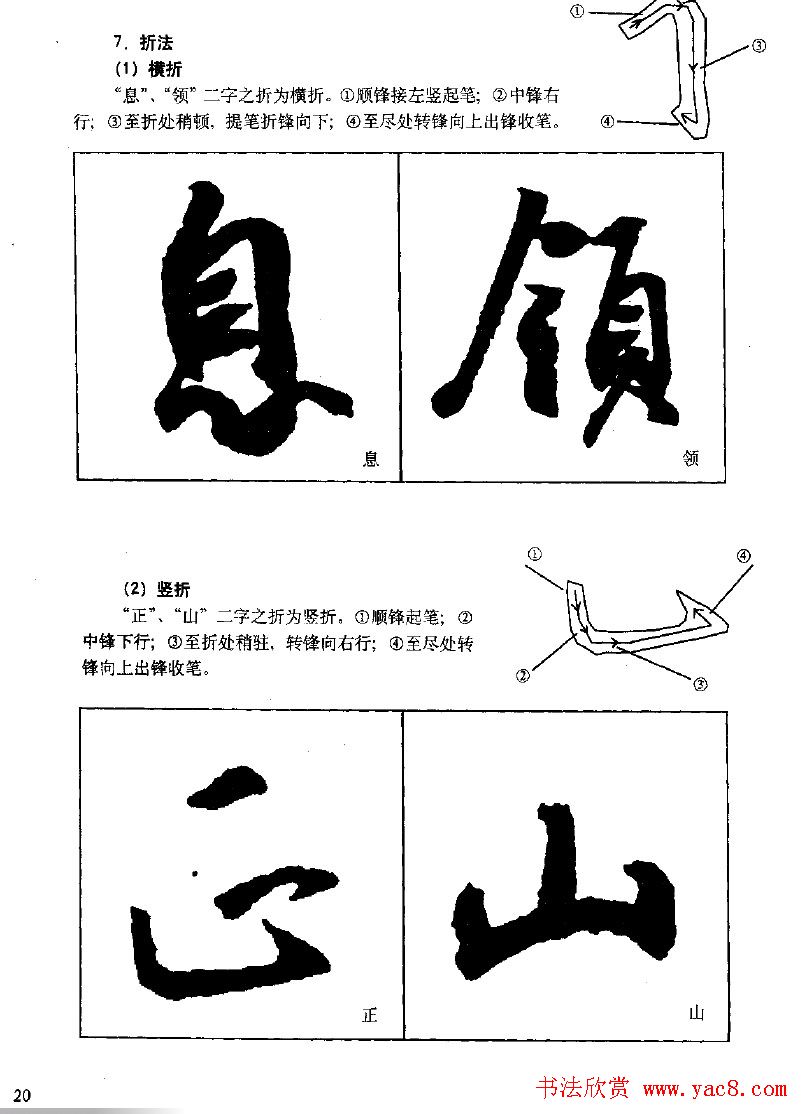 ①
7. 折法
③
(1) 横折
“息”、“领” 二字之折为横折。①顺锋接左竖起笔；②中锋右
行；③至折处稍顿，提笔折锋向下；④至尽处转锋向上出锋收笔。
④
息 領
息 领
① ④
(2) 竖折
“正”、“山” 二字之折为竖折。①顺锋起笔；②
中锋下行；③至折处稍驻，转锋向右行；④至尽处转
锋向上出锋收笔。
② ③
正 山
正 山
20
书法欣赏 www.yac8.com